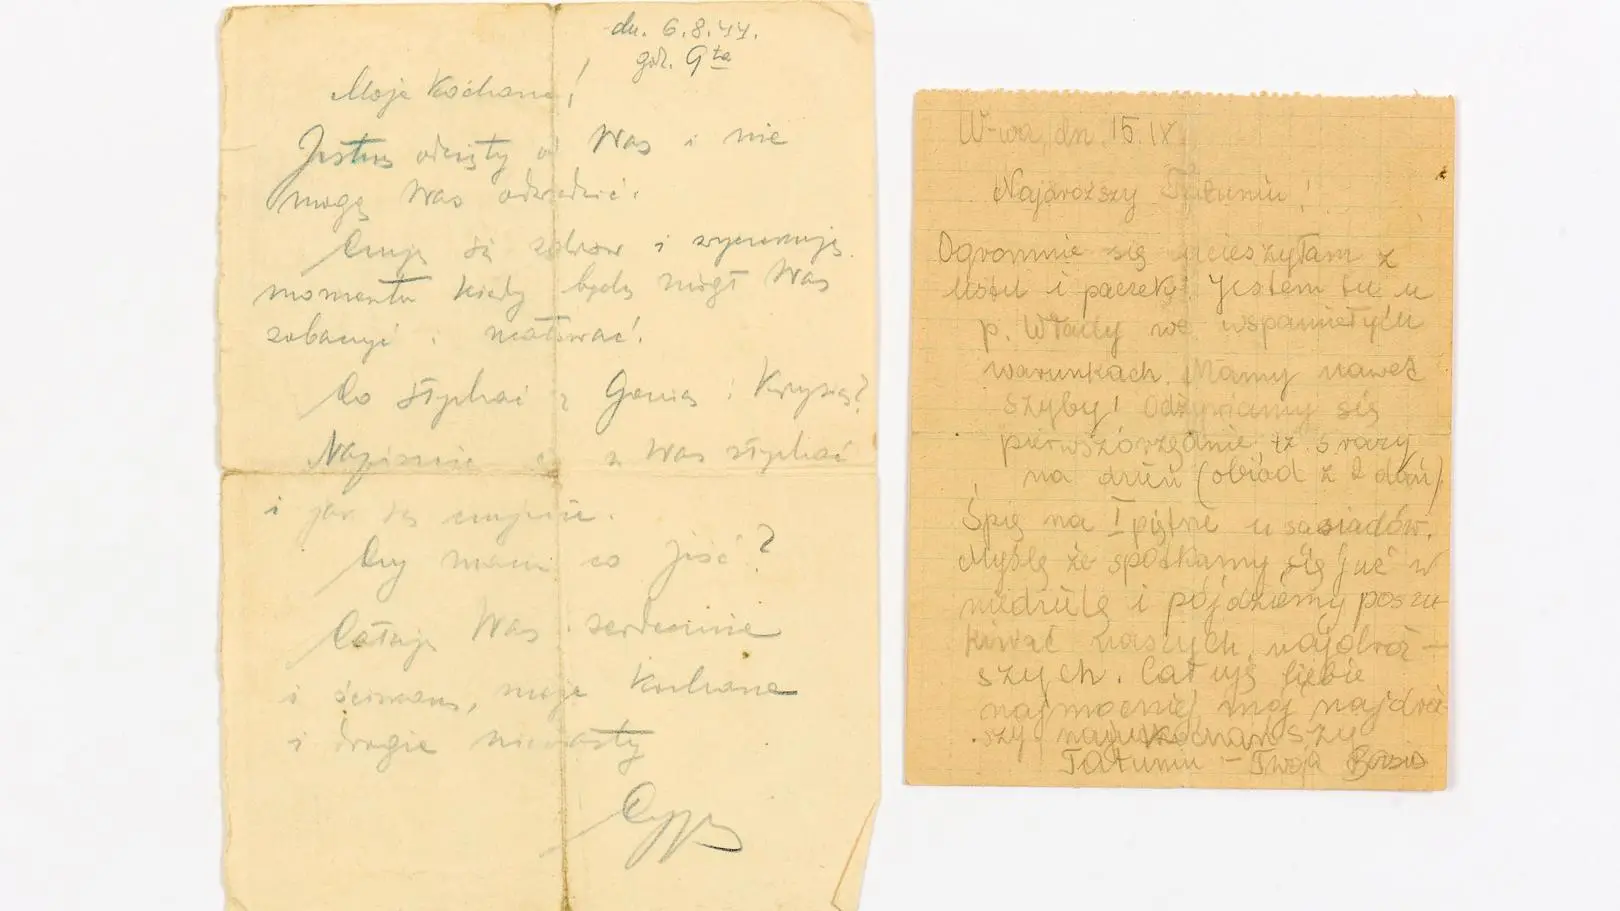 dn. 6.8.44.
godz. 9ta
Moje Kochane!
Jestem odcięty od Was i nie
mogę Was odwiedzić.
Czuję się zdrów i wyczekuję
momentu kiedy będę mógł Was
zobaczyć i
Co słychać z Genią i Krysią?
Napiszcie co z Was słychać
i jak się czujecie.
Czy macie co jeść?
Całuję Was serdecznie
i ściskam, moje Kochane
i drogie niewiasty
W-wa, dn. 15.IX.
Najdroższy Tatuniu!
Ogromnie się ucieszyłam z
listu i paczek. Jestem tu u
p. Włady we wspaniałych
warunkach. Mamy nawet
szyby! Odżywiamy się
pierwszorzędnie tz. 5 razy
na dzień (obiad z 2 dań).
Śpię na I piętrze u sasiadów.
Myślę że spotkamy się już w
niedzielę i pójdziemy poszu-
kiwać naszych najdroż-
szych. Całuję Ciebie
najmocniej mój najdroż-
szy najukochańszy
Tatuniu - Twoja Basia